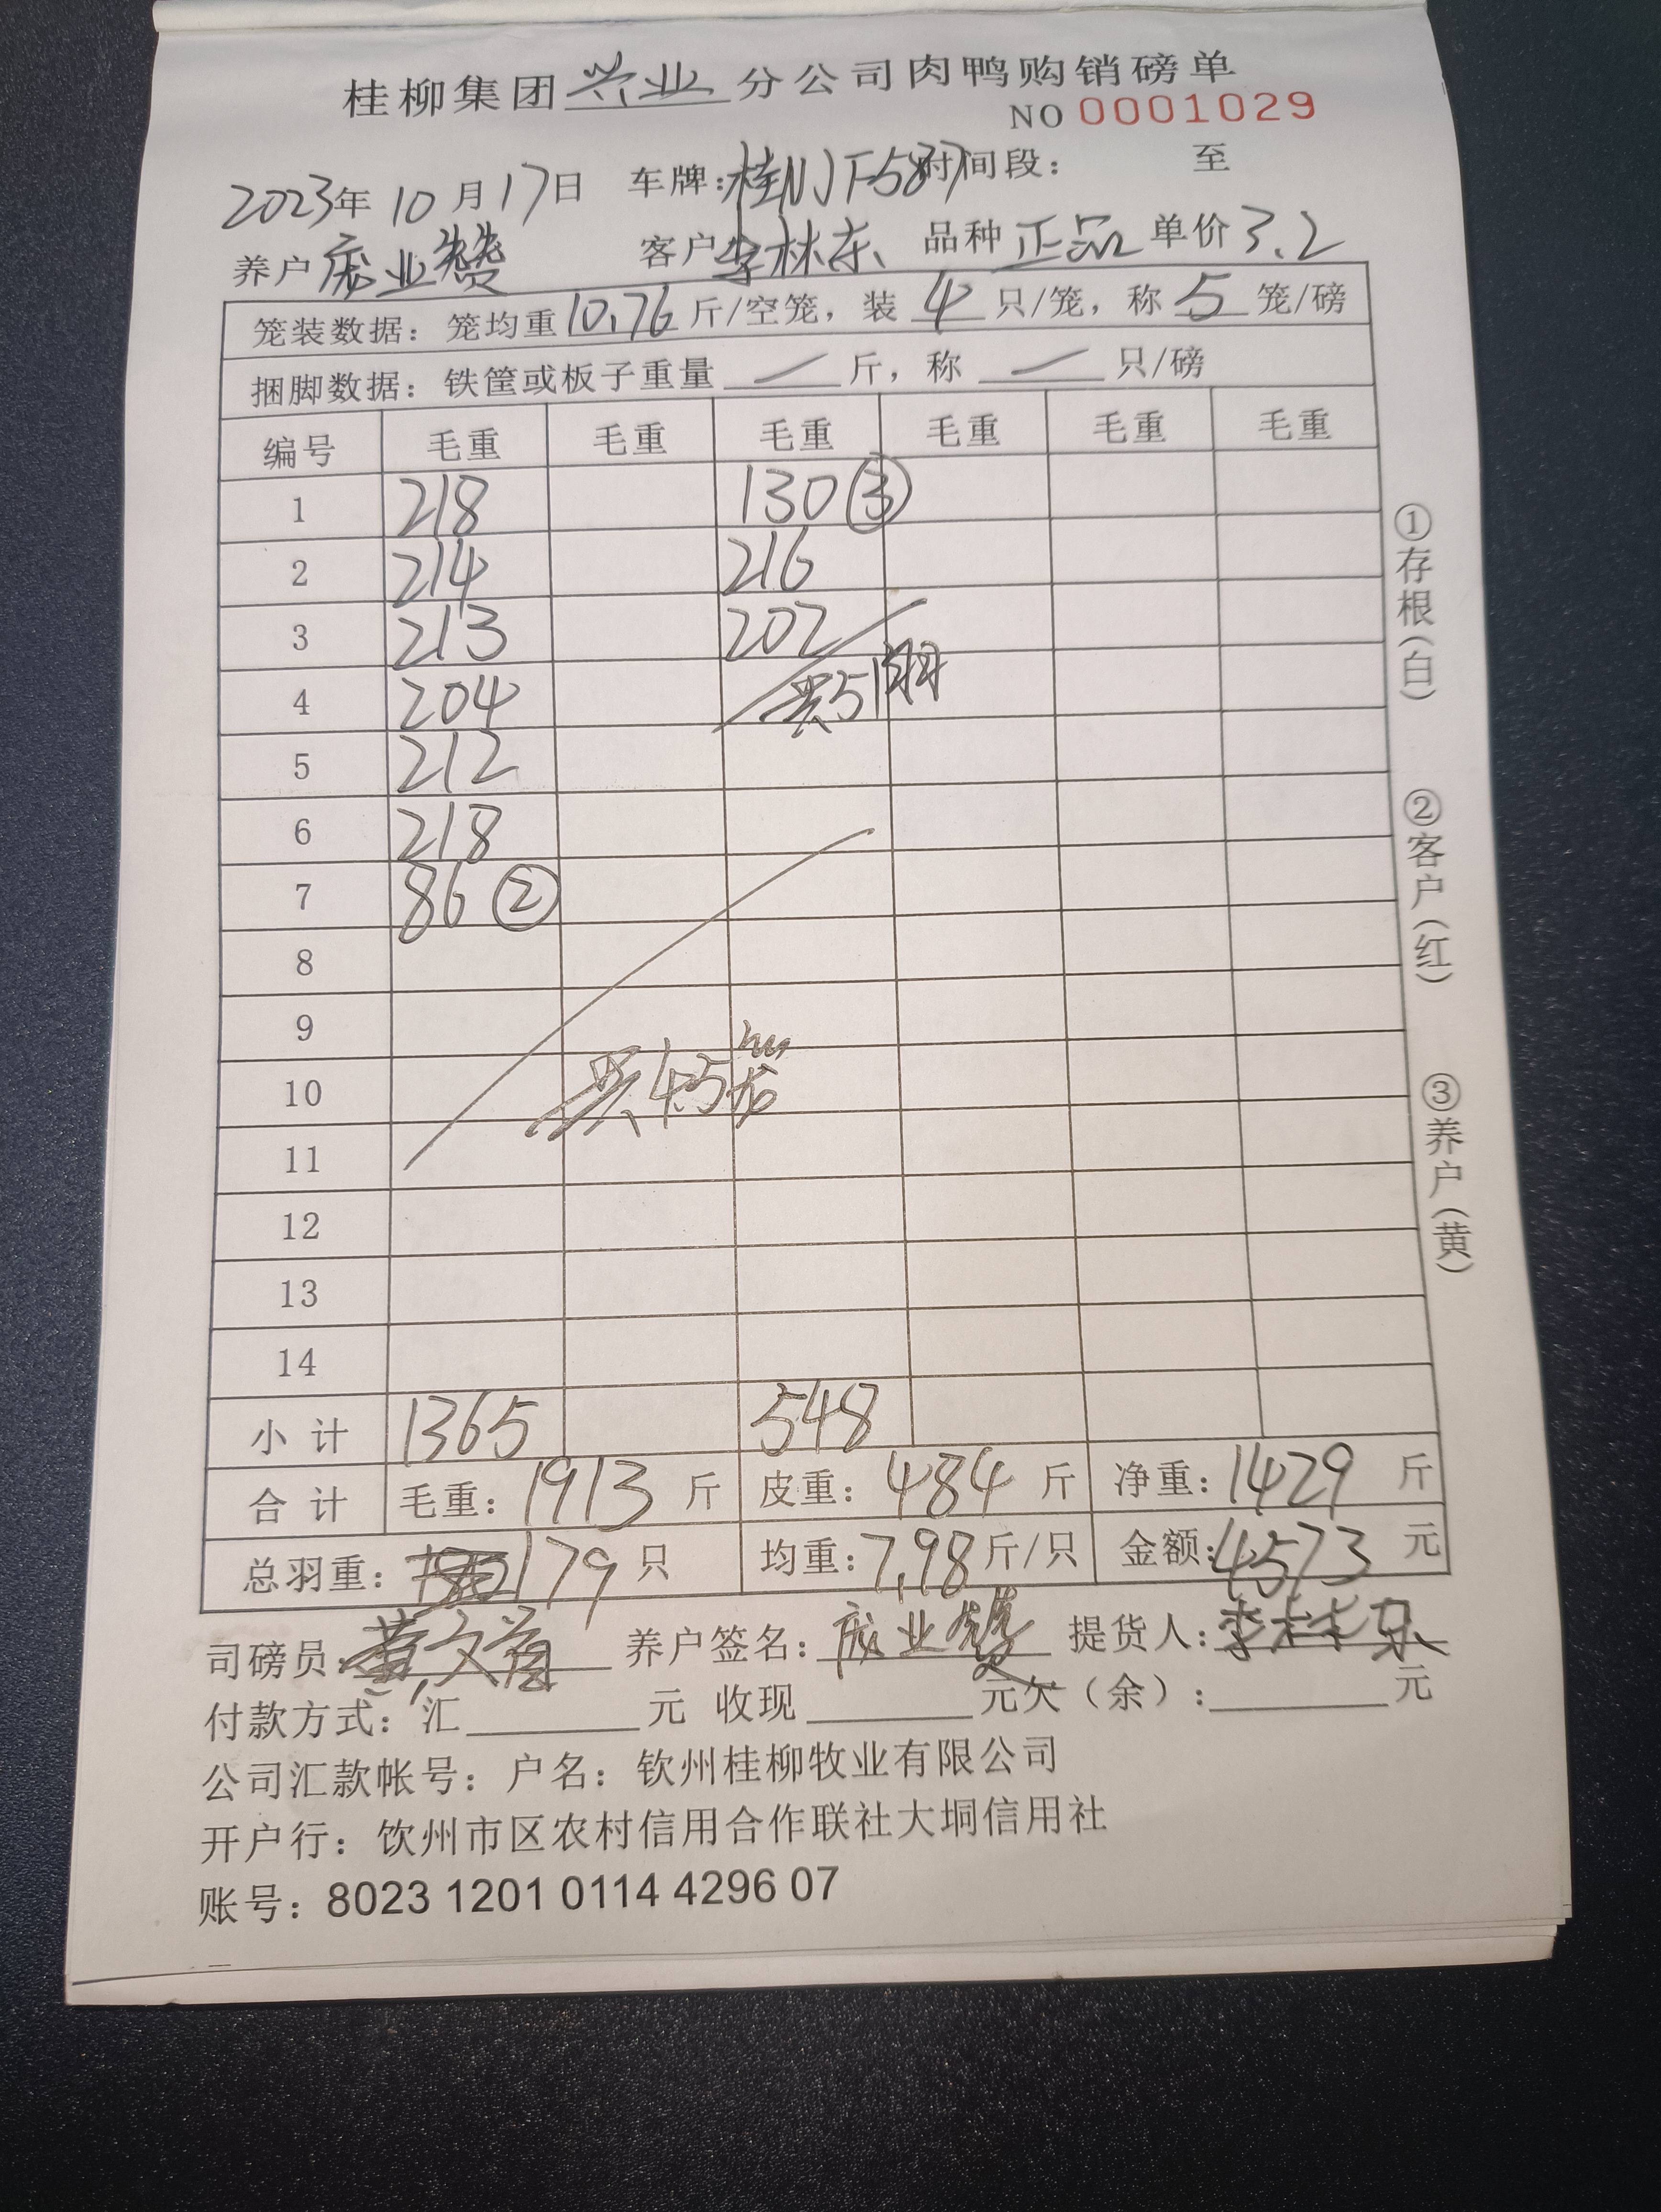 桂柳集团兴业分公司肉鸭购销磅单
NO 0001029
2023年10月17日 车牌:桂NJF587 时间段: 至
养户 庞业赞 客户 李林东 品种 正品 单价 3.2
笼装数据: 笼均重10.76斤/空笼, 装4只/笼, 称5笼/磅
捆脚数据: 铁筐或板子重量 斤, 称 只/磅
编号 毛重 毛重 毛重 毛重 毛重 毛重
1 218 130③
2 214 216
3 213 202
4 204 共51羽
5 212
6 218
7 86②
8
9
10 共45笼
11
12
13
14
小计 1365 548
合计 毛重: 1913斤 皮重: 484斤 净重: 1429斤
总羽重: 179只 均重: 7.98斤/只 金额: 4573元
司磅员: 黄文 养户签名: 庞业赞 提货人: 李林东
付款方式: 汇 元 收现 元欠(余): 元
公司汇款帐号: 户名: 钦州桂柳牧业有限公司
开户行: 钦州市区农村信用合作联社大垌信用社
账号: 8023 1201 0114 4296 07
①存根(白)
②客户(红)
③养户(黄)